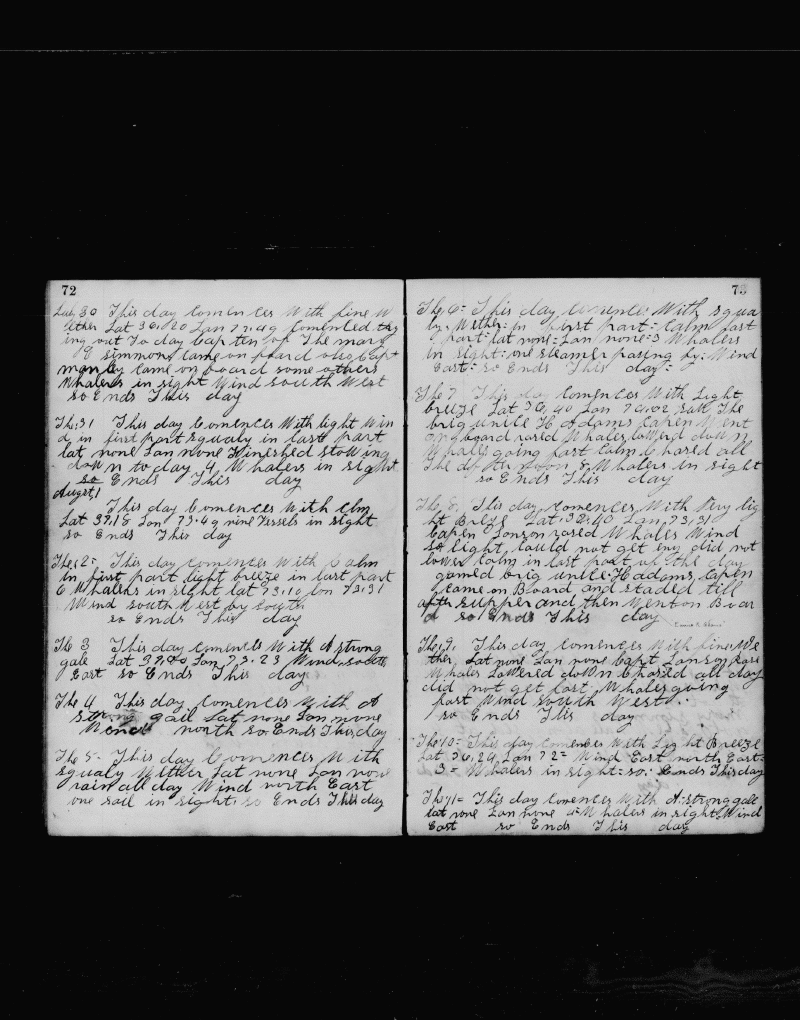 72
July 30 This day Comences With fine W
ether Lat 36,20 Lon 73,49 Comented try
ing out To day Capten of The mary
E simmons Came on board and Capt
manly Came on board some others
Whalers in sight Wind south West
so Ends This day
The 31 This day Comences With light Win
d in first part squaly in last part
lat none Lon none Fineshed stowing
down to day 4 Whalers in sight
so Ends This day
August,1
This day Comences With Clm
Lat 37.18 Lon 73.49 nine Vessels in sight
so Ends This day
The 2= This day Comences With Calm
in first part light breeze in last part
6 Whalers in sight lat 73:10 lon 73:31
Wind south West by south
so Ends This day
The 3 This day comences With A strong
gale Lat 37.40 Lon 73.23 Wind south
East so Ends This day
The 4 This day Comences With A
strong gail Lat none Lon none
Wend north so Ends This day
The 5- This day Comences With
squaly Wether, Lat none Lon none
rain all day Wind north East
one sail in sight: so Ends This day
73
The 6= This day Comences With squa
ly: Wether: in first part= Calm last
part: lat none= Lon none=3 Whalers
in sight: one steamer pasing by: Wind
East= so Ends This day=
The 7 This day Comences With Light
breeze Lat 36,40 Lon 74,02 saw The
brig unile H Adams Capen Went
on board rased Whales lowerd down
Whales going fast Calm Chased all
The after noon 5 Whalers in sight
so Ends This day
The 8, This day Comences With Very lig
ht Breze Lat:32:40 Lon,73,31
Capen Lonson rased Whales Wind
so light, Could not git eny did not
lower Calm in last part of the day
gamed brig unile: H adams, Capen
Came on Board and staded till
after supper and then Went on Boar
d so Ends This day
The,9, This day Comences With fine We
ther, Lat none Lon none Capt Lonson Rase
Whales Lowered down Chased all day
did not get fast Whales going
fast Wind South West.
so Ends This day
The 10= This day Comences With Light Breeze
Lat 36,29 Lon 72= Wind East north East=
3= Whalers in sight: so: Ends This day
The 11= This day Comences With A: strong gale
lat none Lon none Whalers in sight: Wind
East so Ends This day